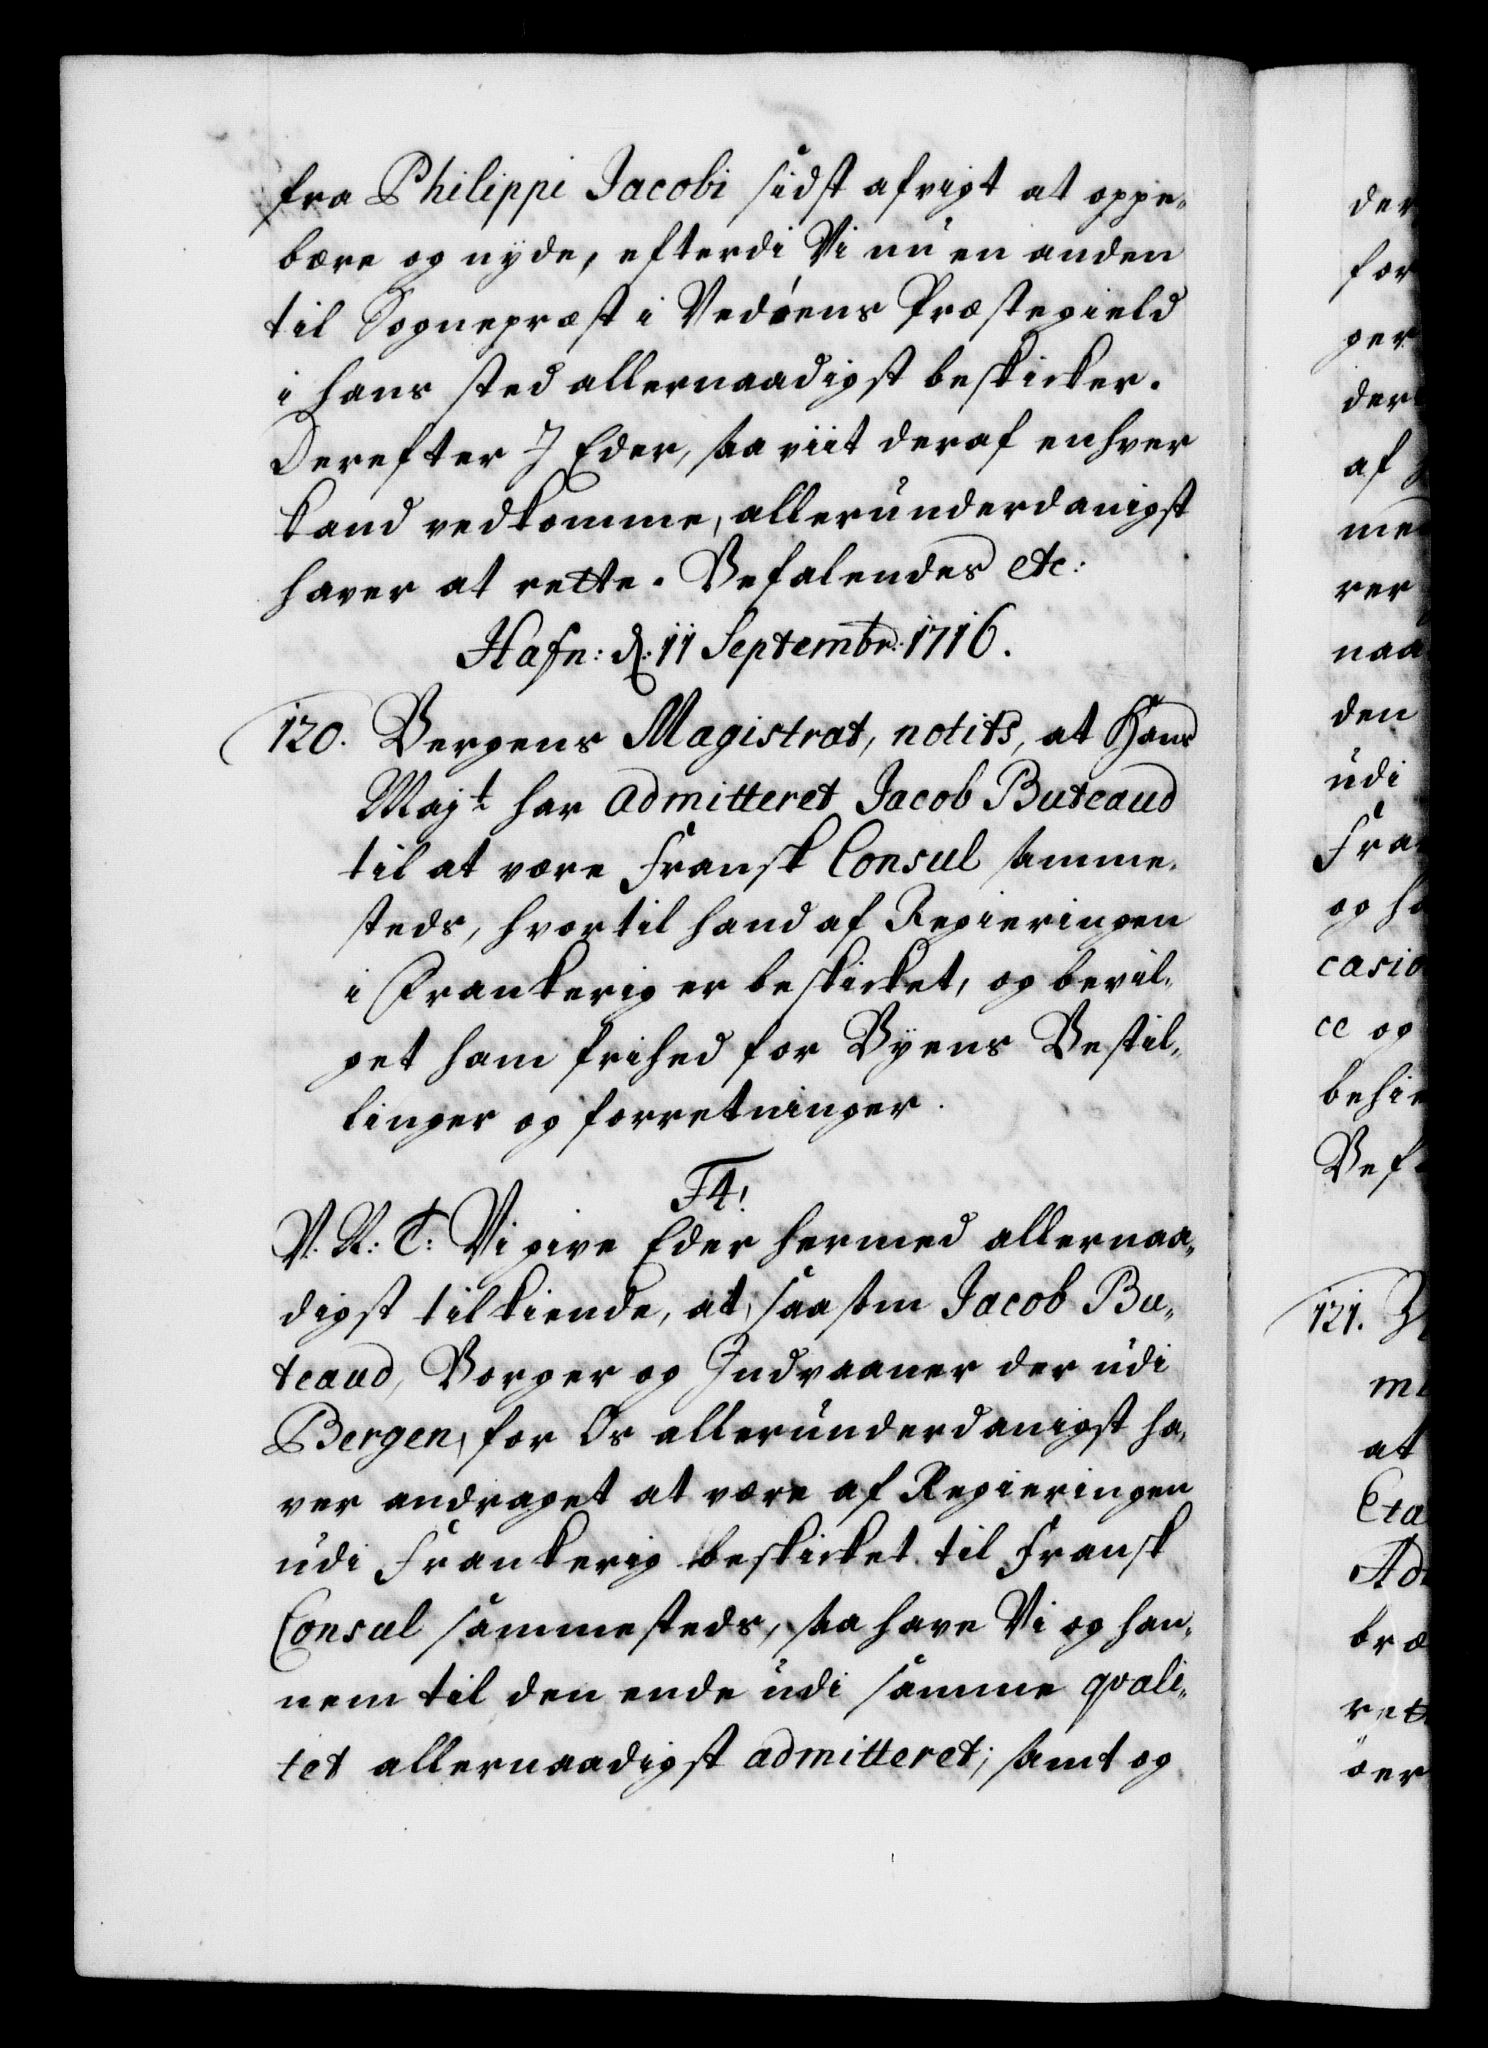 fra Philippi Jacobi sidst afvigt at oppe-
bære og nyde, efterdi Vi nu en anden
til Sognepræst i Vedøens Præstegield
i hans sted allernaadigst beskicker.
Derefter I Eder, saa viit deraf enhver
kand vedkomme, allerunderdanigst
haver at rette. Befalendes etc:
Hafn: d: 11 Septembr: 1716.
120. Bergens Magistrat, notits, at Hans
Majt: har admitteret Jacob Buteaud
til at være Fransk Consul samme-
steds, hvortil hand af Regieringen
i Frankerig er beskicket, og bevil-
get ham frihed for Byens Bestil-
linger og forretninger.
F4!
V. N: T: Vi give Eder hermed allernaa-
digst tilkiende, at, saasom Jacob Bu-
teaud, Borger og Indvaaner der udi
Bergen, for Os allerunderdanigst ha-
ver andraget at være af Regieringen
udi Frankerig beskicket til Fransk
Consul sammesteds, saa have Vi og han-
nem til den ende udi samme qvali-
tet allernaadigst admitteret; samt og
der
for
ger
der
af
me
rer
naa
den
udi
Fra
og ha
casio
ce og
behie
Bef
121.
mi
at
Eta
Ad
bræ
ret
øer